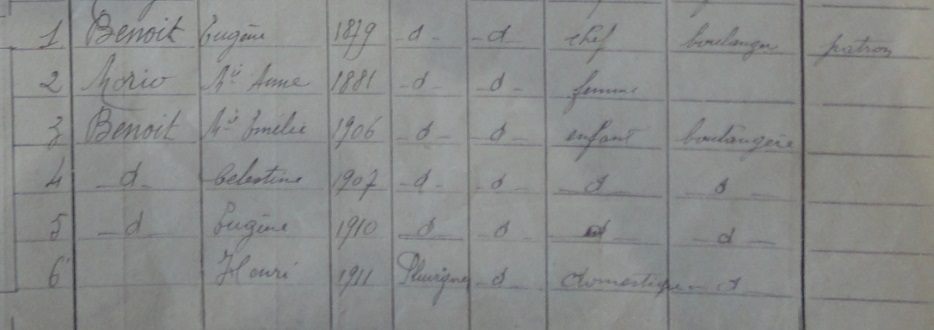 1 Benoit Eugène 1879 -d- -d chef boulanger patron
2 Morio Mie Anne 1881 -d- -d- femme
3 Benoit Mie Emélie 1906 -d- -d- enfant boulangère
4 -d- Celestine 1907 -d- -d- d d
5 -d- Eugène 1910 d d d -d-
6 Henri 1911 Pluvigner -d domestique -d